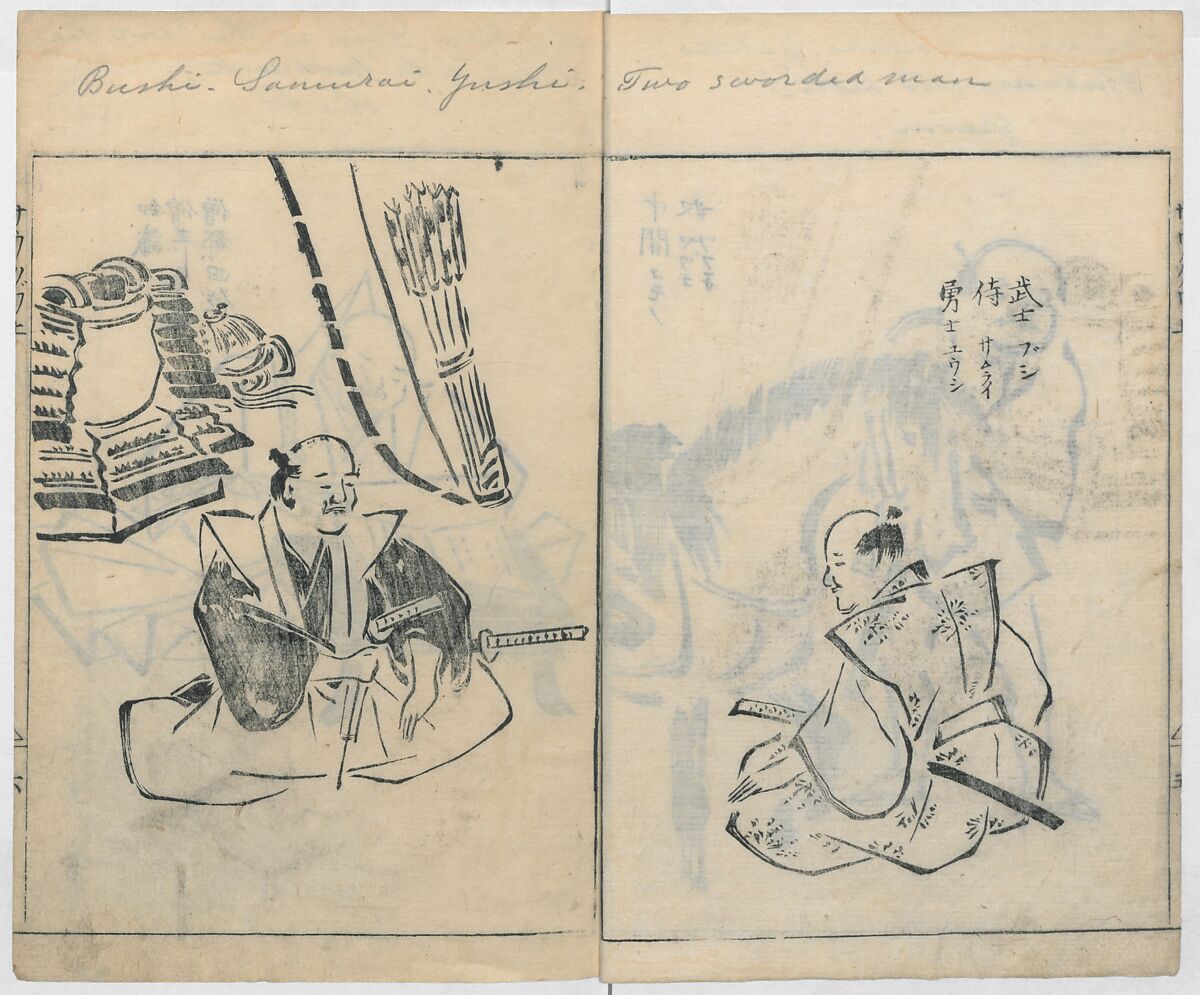 Bushi. Samurai. Yushi. Two sworded man
武士 ブシ
侍 サムライ
勇士 ユウシ